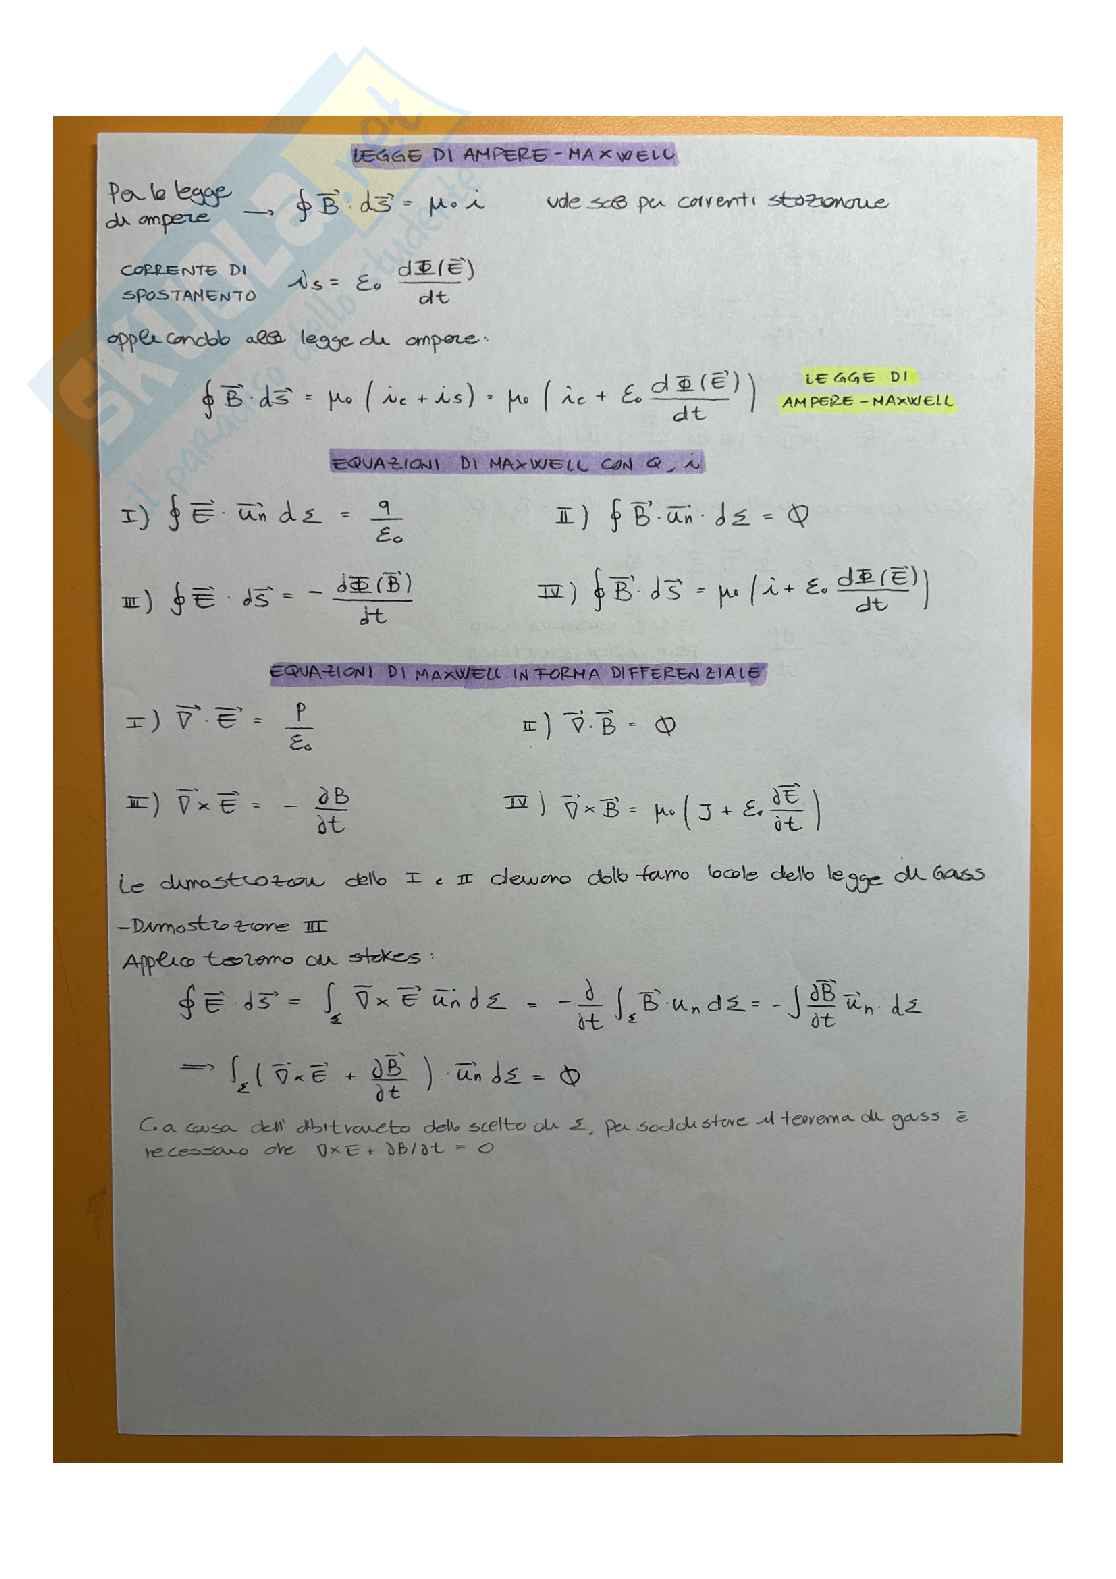 LEGGE DI AMPERE-MAXWELL
Per la legge di ampere → ∮ B⃗ · ds⃗ = μ₀ i vale solo per correnti stazionarie
CORRENTE DI SPOSTAMENTO iₛ = ε₀ dΦ(E⃗)/dt
applicandolo alla legge di ampere:
∮ B⃗ · ds⃗ = μ₀ (i_c + iₛ) = μ₀ (i_c + ε₀ dΦ(E⃗)/dt) LEGGE DI AMPERE-MAXWELL
EQUAZIONI DI MAXWELL CON Q, i
I) ∮ E⃗ · u⃗n dΣ = q/ε₀ II) ∮ B⃗ · u⃗n · dΣ = Ø
III) ∮ E⃗ · ds⃗ = - dΦ(B⃗)/dt IV) ∮ B⃗ · ds⃗ = μ₀ (i + ε₀ dΦ(E⃗)/dt)
EQUAZIONI DI MAXWELL IN FORMA DIFFERENZIALE
I) ∇⃗ · E⃗ = ρ/ε₀ II) ∇⃗ · B⃗ = Ø
III) ∇⃗ × E⃗ = - ∂B/∂t IV) ∇⃗ × B⃗ = μ₀ (J + ε₀ ∂E⃗/∂t)
Le dimostrazioni della I e II derivano dalla forma locale della legge di Gass
- Dimostrazione III
Applico teorema di stokes:
∮ E⃗ · ds⃗ = ∫_Σ ∇⃗ × E⃗ u⃗n dΣ = - ∂/∂t ∫_Σ B⃗ · un dΣ = - ∫ ∂B⃗/∂t u⃗n · dΣ
⟹ ∫_Σ (∇⃗ × E⃗ + ∂B⃗/∂t) · u⃗n dΣ = Ø
a causa dell' della scelta di Σ, per soddisfare il teorema di gass è
necessario che ∇×E + ∂B/∂t = 0
SKUOLA.net
il paradiso dello studente